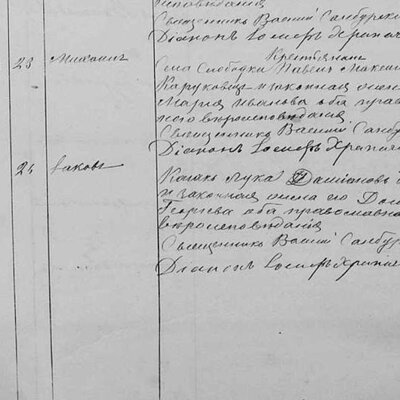 исповедания
Священникъ Василий Самбурск
Діаконъ Іосифъ Хрипач
23 Михаилъ Крестьянинъ
Села Слободки Павелъ Максим
и законная жена
Марія Иванова оба прав
наго вероисповѣданія
Священникъ Василий Самбур
Діаконъ Іосифъ Хрипач
24 Іаковъ Козакъ Лука Даміановъ
и законная жена его Дом
Георгіева оба православна
вероисповѣданія
Священникъ Василий Самбур
Діаконъ Іосифъ Хрипач